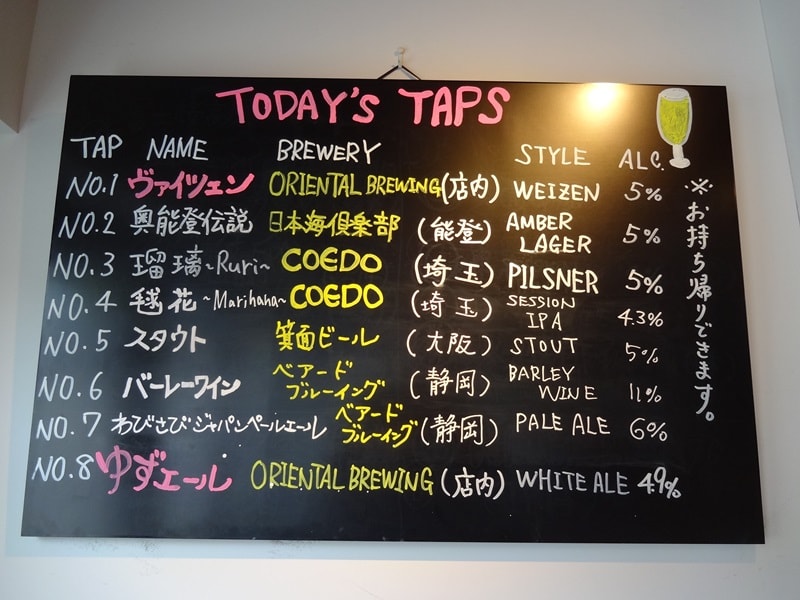 TODAY'S TAPS
TAP NAME BREWERY STYLE ALC.
NO.1 ヴァイツェン ORIENTAL BREWING (店内) WEIZEN 5%
NO.2 奥能登伝説 日本海倶楽部 (能登) AMBER LAGER 5%
NO.3 瑠璃~Ruri~ COEDO (埼玉) PILSNER 5%
NO.4 毬花~Marihana~ COEDO (埼玉) SESSION IPA 4.3%
NO.5 スタウト 箕面ビール (大阪) STOUT 5%
NO.6 バーレーワイン ベアードブルーイング (静岡) BARLEY WINE 11%
NO.7 わびさびジャパンペールエール ベアードブルーイング (静岡) PALE ALE 6%
NO.8 ゆずエール ORIENTAL BREWING (店内) WHITE ALE 4.9%
※お持ち帰りできます。